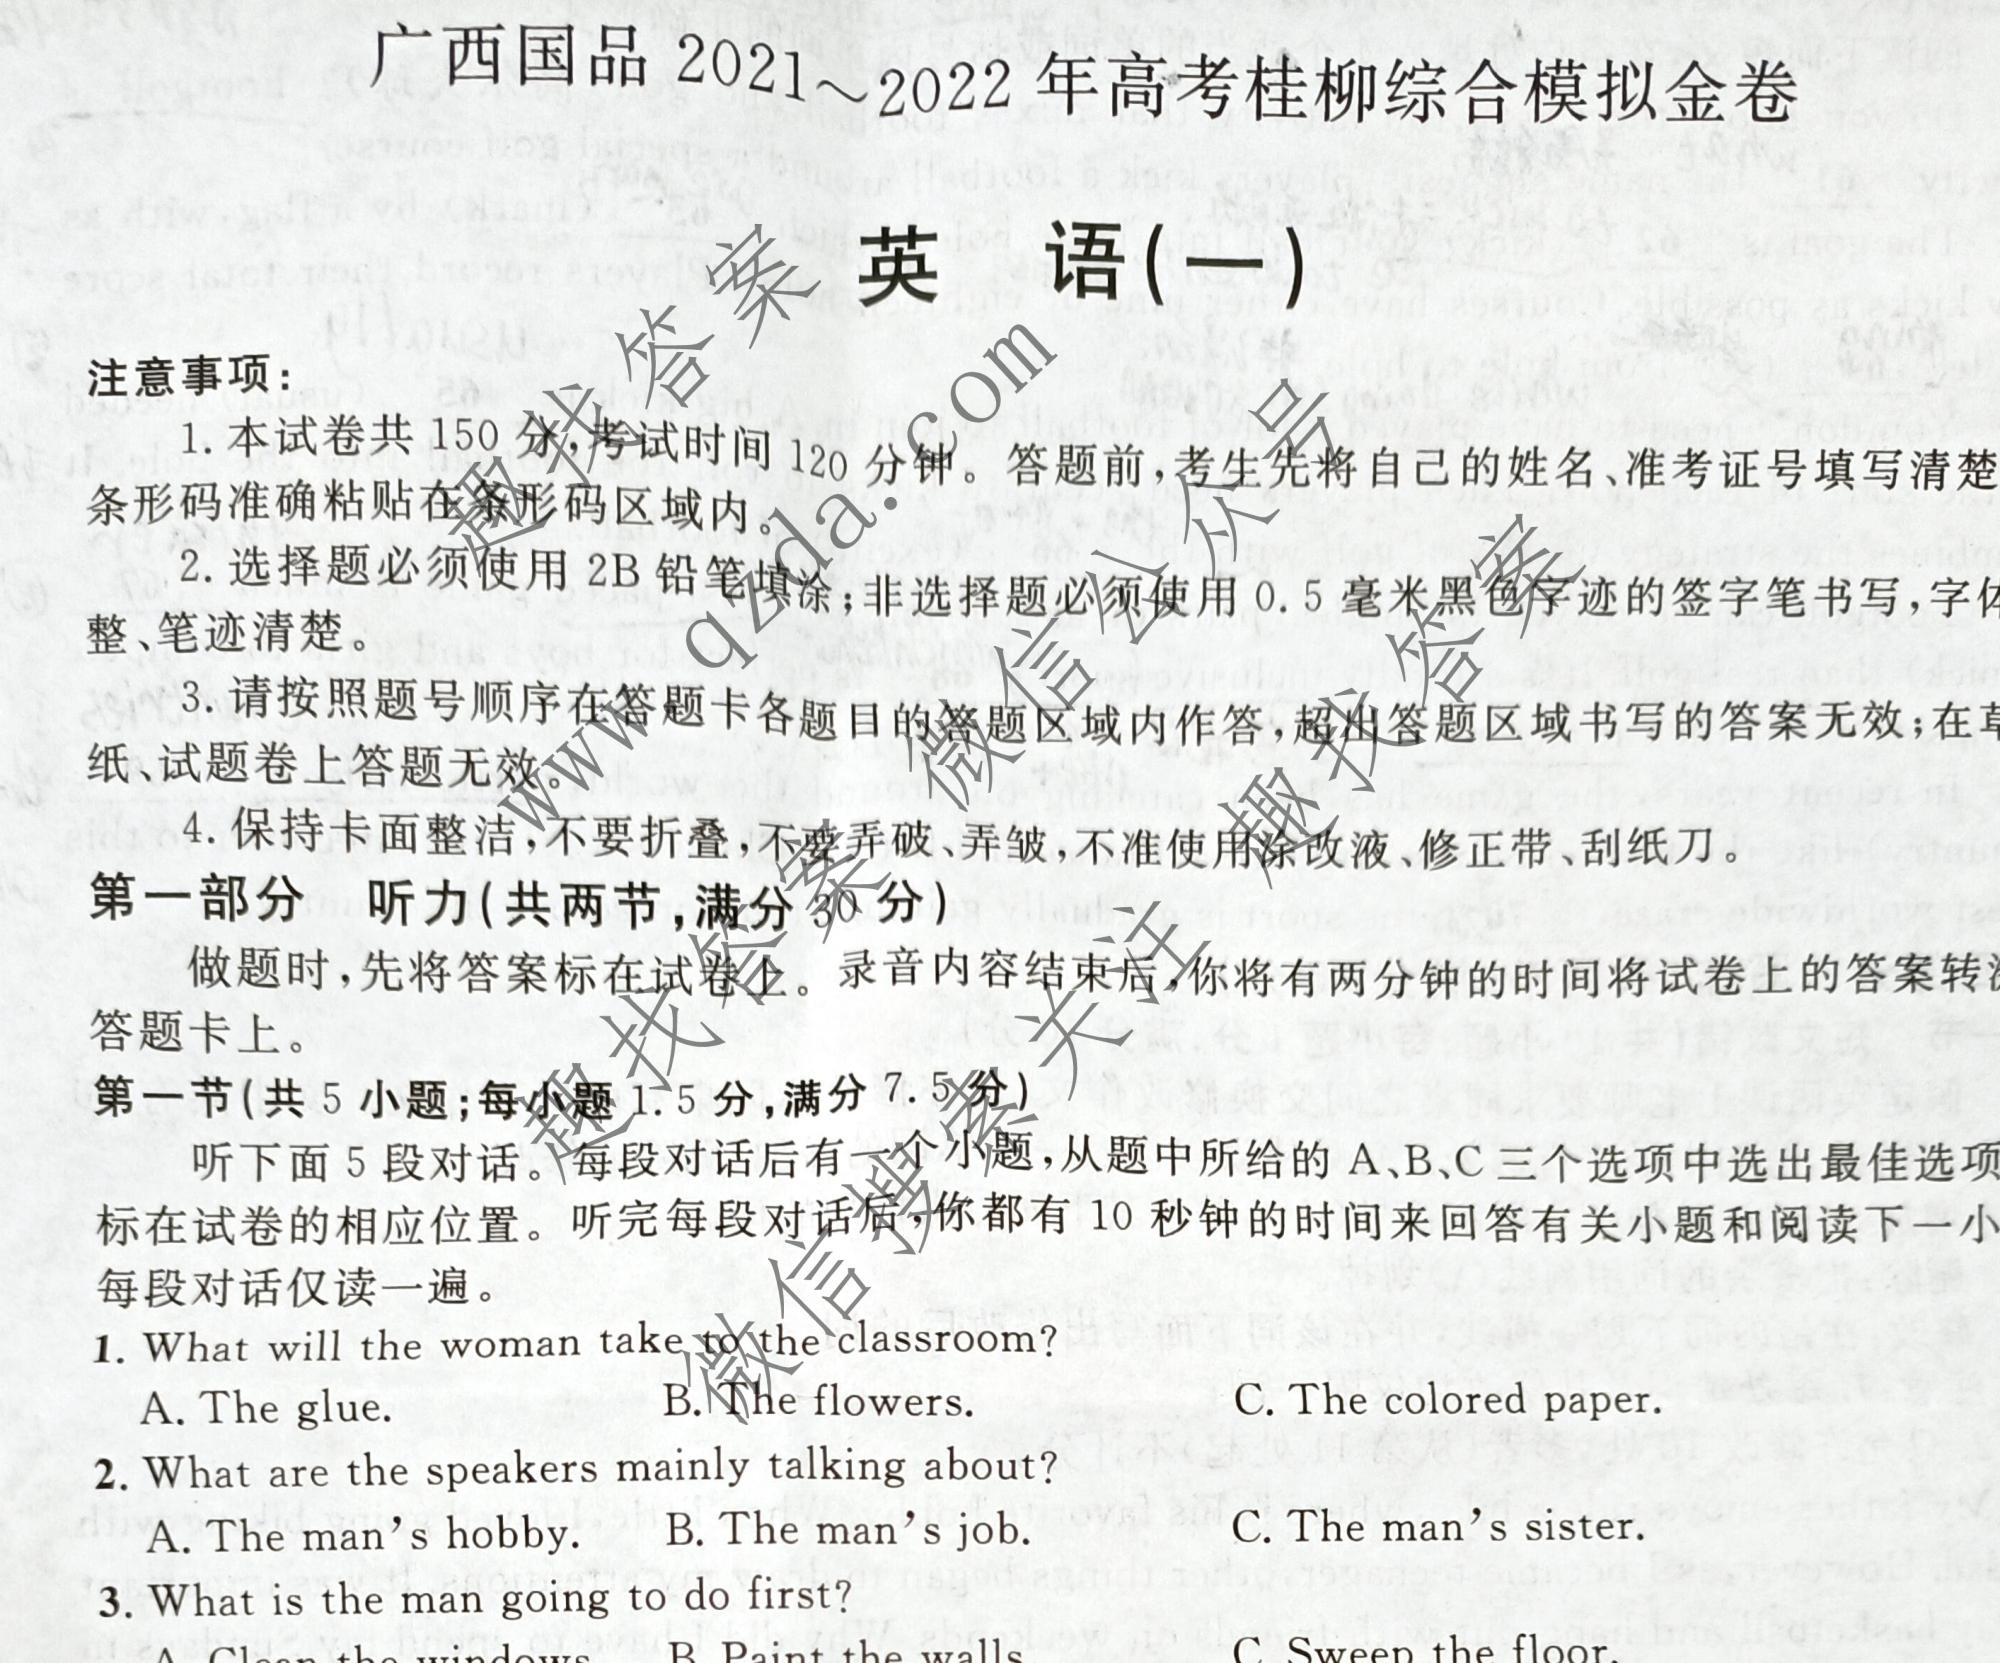 广西国品 2021～2022 年高考桂柳综合模拟金卷
英 语(一)
注意事项:
1. 本试卷共 150 分,考试时间 120 分钟。答题前,考生先将自己的姓名、准考证号填写清楚
条形码准确粘贴在条形码区域内。
2. 选择题必须使用 2B 铅笔填涂;非选择题必须使用 0.5 毫米黑色字迹的签字笔书写,字体
整、笔迹清楚。
3. 请按照题号顺序在答题卡各题目的答题区域内作答,超出答题区域书写的答案无效;在草
纸、试题卷上答题无效。
4. 保持卡面整洁,不要折叠,不要弄破、弄皱,不准使用涂改液、修正带、刮纸刀。
第一部分 听力(共两节,满分 30 分)
做题时,先将答案标在试卷上。录音内容结束后,你将有两分钟的时间将试卷上的答案转涂
答题卡上。
第一节(共 5 小题;每小题 1.5 分,满分 7.5 分)
听下面 5 段对话。每段对话后有一个小题,从题中所给的 A、B、C 三个选项中选出最佳选项
标在试卷的相应位置。听完每段对话后,你都有 10 秒钟的时间来回答有关小题和阅读下一小
每段对话仅读一遍。
1. What will the woman take to the classroom?
A. The glue. B. The flowers. C. The colored paper.
2. What are the speakers mainly talking about?
A. The man's hobby. B. The man's job. C. The man's sister.
3. What is the man going to do first?
A. Clean the windows. B. Paint the walls. C. Sweep the floor.
趣找答案
www.qzda.com
微信公众号
趣找答案
趣找答案
微信搜索关注